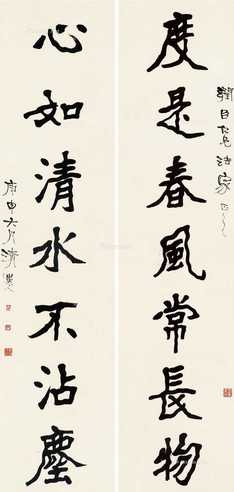 度是春風常長物
心如清水不沾塵
庚申六月